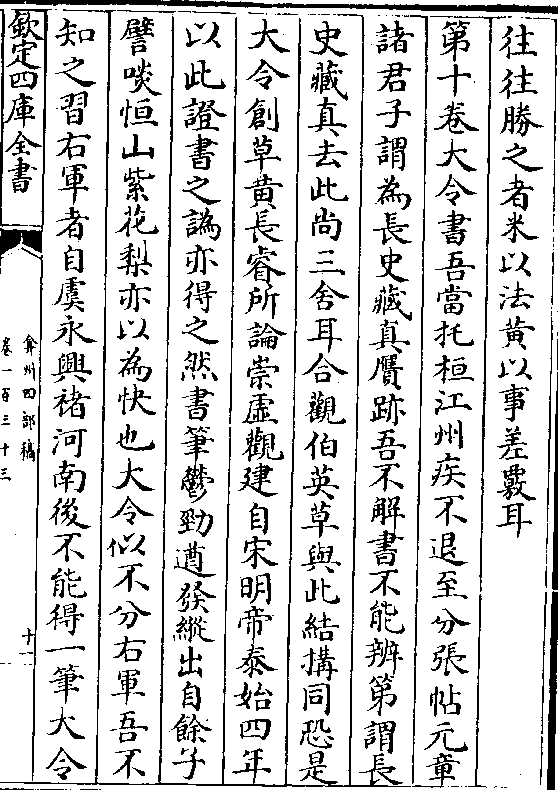 往往勝之者米以法黄以事差覈耳
第十卷大令書吾當托桓江州疾不退至分張帖元章
諸君子謂為長史藏真贋跡吾不解書不能辨第謂長
史藏真去此尚三舍耳合觀伯英草與此結搆同恐是
大令創草黄長睿所論崇虛觀建自宋明帝泰始四年
以此證書之譌亦得之然書筆鬱勁遒發縱出自餘子
譬啖恒山紫花梨亦以為快也大令似不分右軍吾不
知之習右軍者自虞永興褚河南後不能得一筆大令
欽定四庫全書
弇州四部稿
卷一百三十三
十一